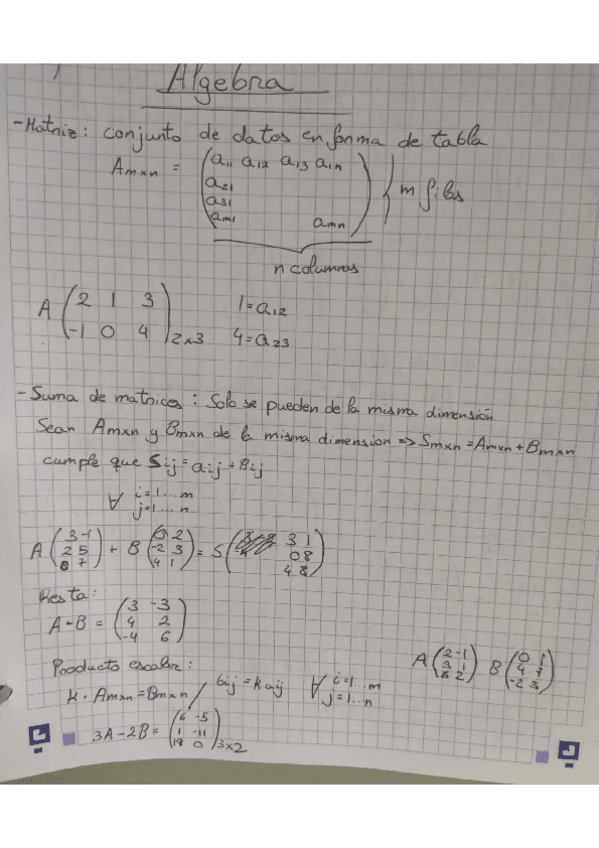 Algebra
- Matriz: conjunto de datos en forma de tabla
Amxn = (a11 a12 a13 a1n
a21
a31
am1 amn) } m filas
n columnas
A (2 1 3
-1 0 4) 2x3
1 = a12
4 = a23
- Suma de matrices: Solo se pueden de la misma dimensión
Sean Amxn y Bmxn de la misma dimension => Smxn = Amxn + Bmxn
cumple que Sij = aij + Bij
∀ i=1...m
j=1...n
A (3 -1
2 5
0 7) + B (0 2
-2 3
4 1) = S (3 1
0 8
4 8)
Resta:
A-B = (3 -3
4 2
-4 6)
Producto escolar:
K · Amxn = Bmxn / bij = k aij ∀ i=1...m
j=1...n
A (2 -1
3 1
5 2) B (0 1
4 7
-2 3)
3A-2B = (6 -5
1 -11
19 0) 3x2